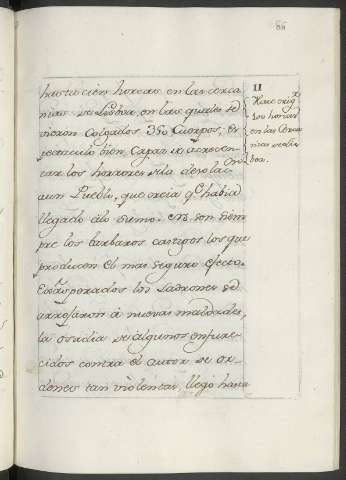 86
hasta cien horcas en las cerca
nias de Lisboa, en las quales se
vieron colgados 350 Cuerpos, es
pectaculo bien capaz de acrecen
tar los horrores de la desolac.on
a un Pueblo, que creia q.e habia
llegado a lo sumo. No son siem
pre los barbaros castigos los que
producen el mas seguro efecto.
Exasperados los Ladrones se
arrojaron a nuevas maldades,
la osadia de algunos enfure
cidos contra el autor de or
denes tan violentas, llegó hasta
II
Hace erig.r
horcas
en las cerca
nias de Lis
boa.